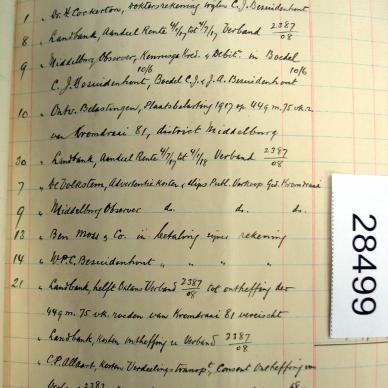 1 „ Dr. H. Cockerton, doktersrekening wijlen C.J. Bezuidenhout
8 „ Landbank, Aandeel Rente 4/1/17 tot 4/7/17 Verband 2387/08
9 „ Middelburg Observer, Kennisge Kred. & Debit. in Boedel
C.J. Bezuidenhout, 10/6 Boedel C.J. & J.A. Bezuidenhout 10/6
10 „ Ontv. Belastingen, Plaatsbelasting 1917 op 449 m. 75 v.k.r.
van Kromdraai 81, district Middelburg
30 „ Landbank, Aandeel Rente 4/7/17 tot 4/1/18 Verband 2387/08
7 „ De Volkstem, Advertentie kosten & slips Publ. Verkoop Ged. Kromdraai
9 „ Middelburg Observer do. do. do.
13 „ Ben Moss & Co. in betaling zijner rekening
14 „ W.P.C. Bezuidenhout „ „ „ „
21 „ Landbank, helft Balans Verband 2387/08 tot ontheffing der
449 m. 75 v.k. roeden van Kromdraai 81 vereischt
„ Landbank, Kosten ontheffing u Verband 2387/08
„ C.P. Allaart, Kosten Verdeelings transpt, Consent Ontheffing van
2387 08
28499